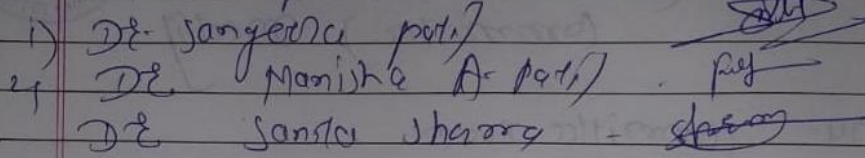 1) Dr. Sangeeta patil
2) Dr Manisha A. Patil
Dr Sarita Sharma -